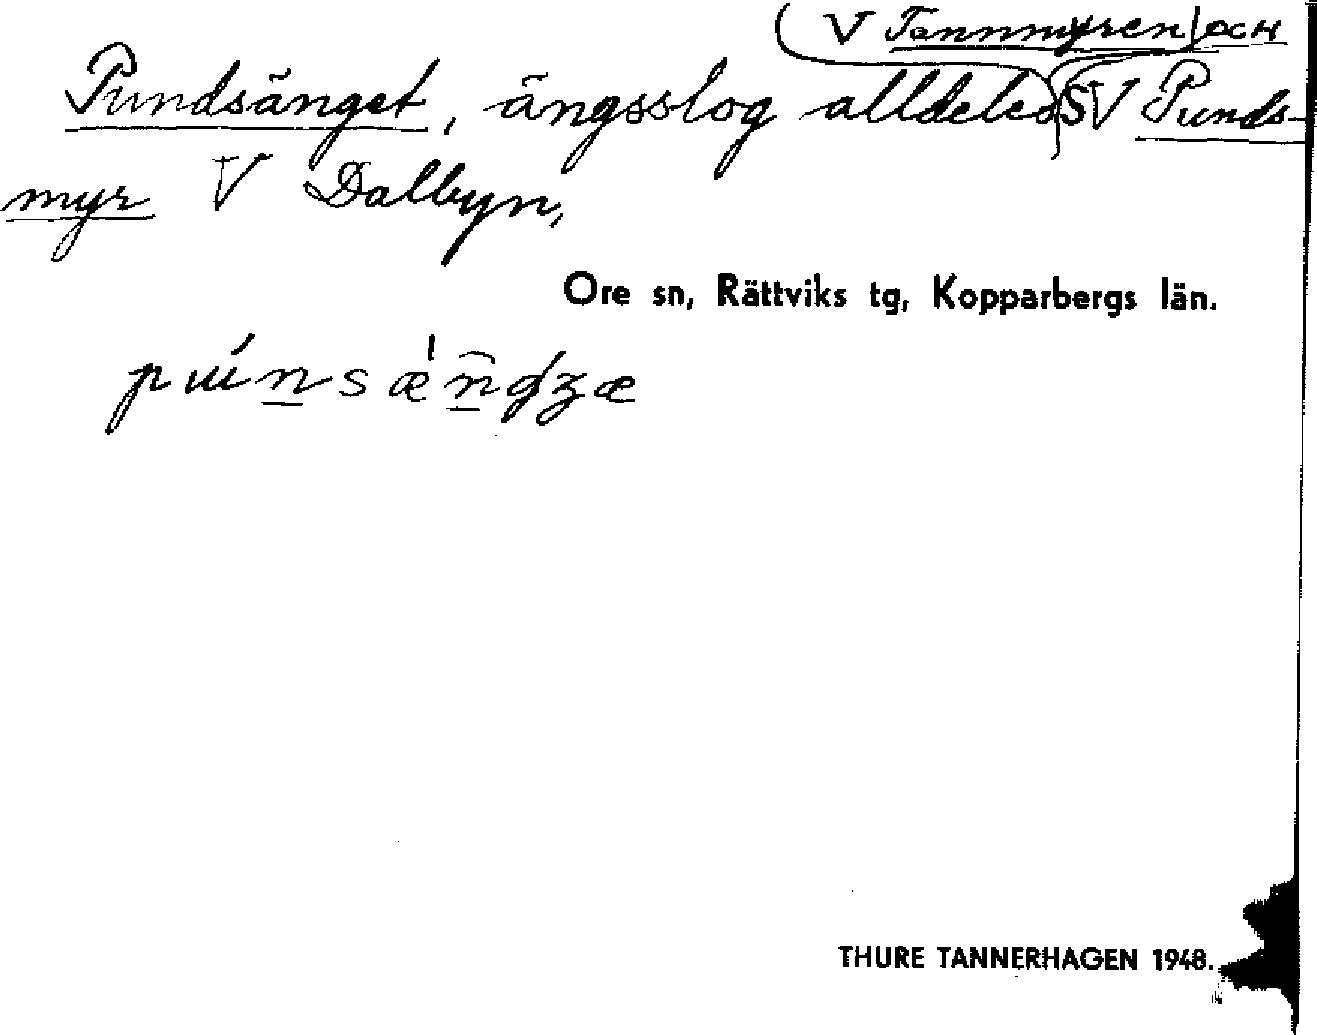 V Tannmyren och
Pundsänget, ängsslog alldeles SV Punds-
myr V Dalbyn,
Ore sn, Rättviks tg, Kopparbergs län.
pɯ́n̲sæ̀n̲ʤæ
THURE TANNERHAGEN 1948.